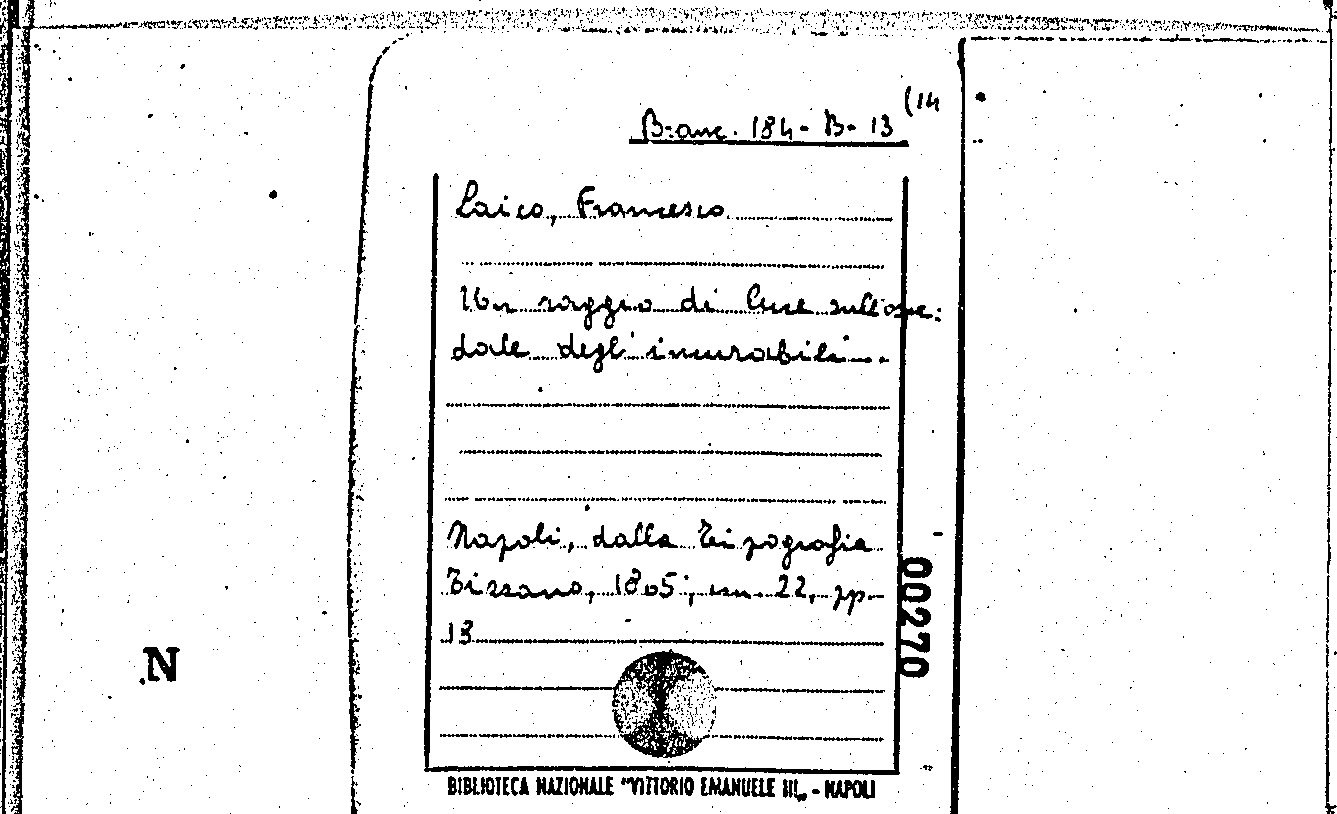 Branc. 184-B-13 (14
Laico, Francesco
Un raggio di luce sull'ospe:
dale degl'incurabili.
Napoli, dalla Tipografia
Tizzano, 1805; cm. 22, pp.
13
00270
N
BIBLIOTECA NAZIONALE "VITTORIO EMANUELE III„ - NAPOLI